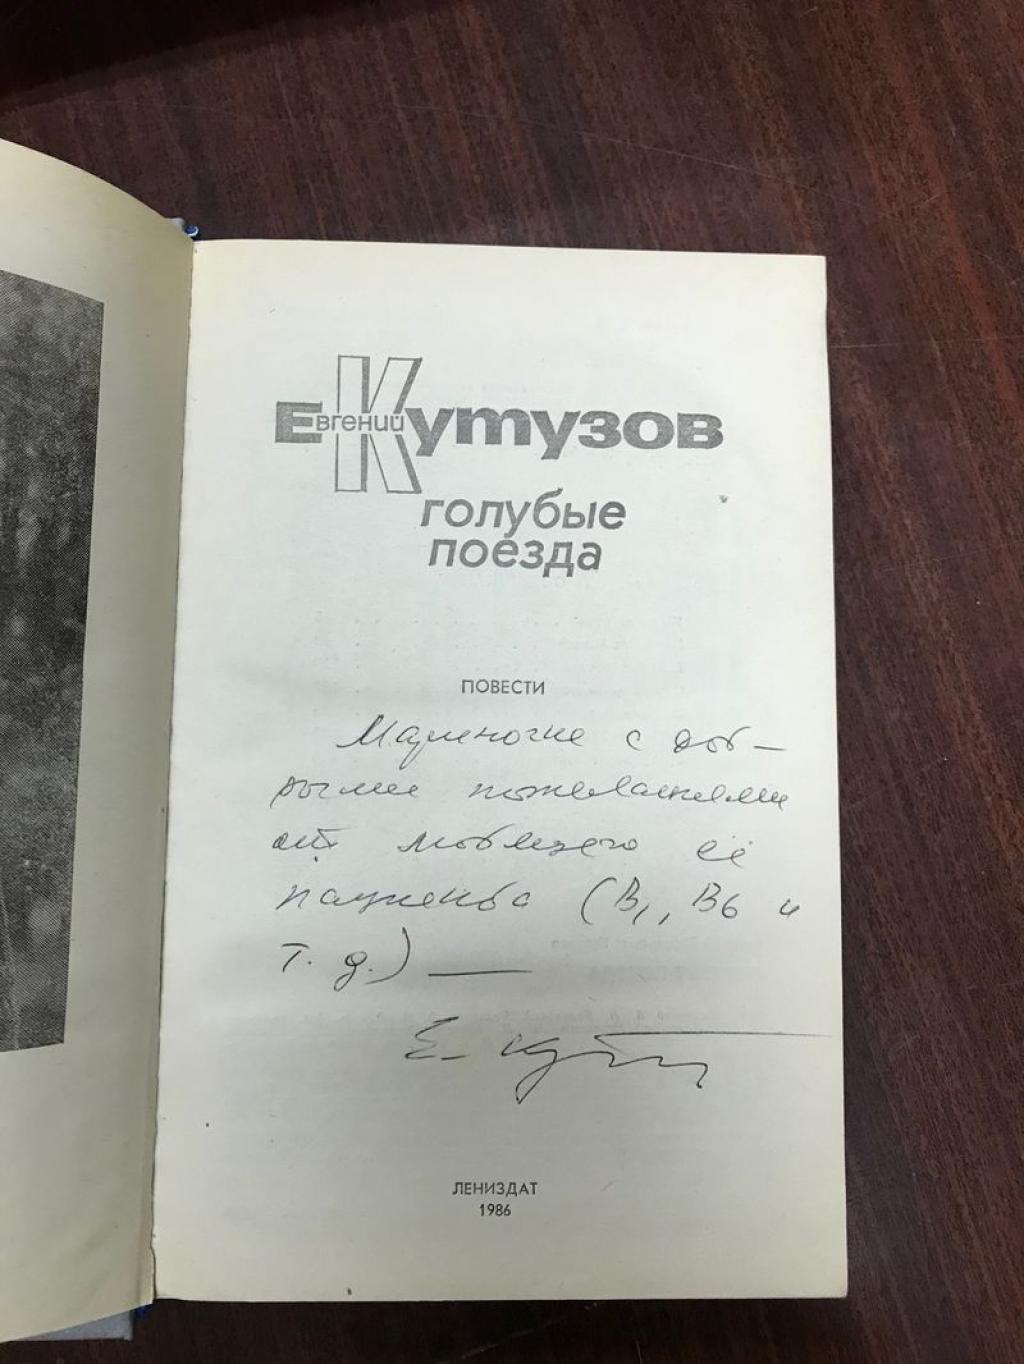 Евгений Кутузов
голубые
поезда
ПОВЕСТИ
Мариночке с доб-
рыми пожеланиями
от любящего её
пациента (В1, В6 и
т. д.) —
Е. Кут
ЛЕНИЗДАТ
1986